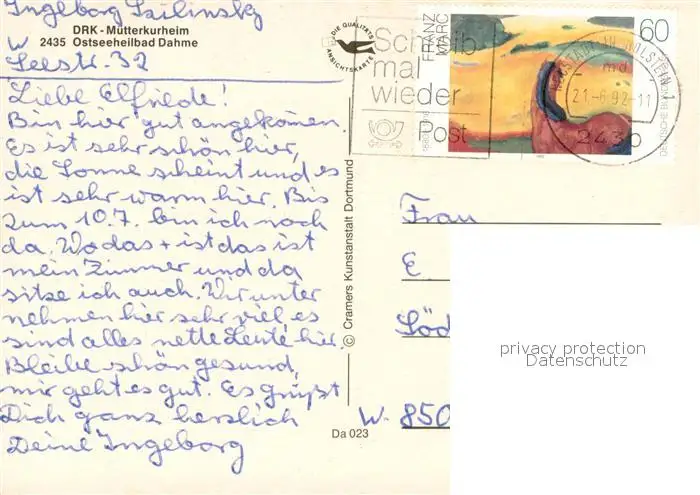 Ingeborg Tsilinsky
DRK - Mütterkurheim
W 2435 Ostseeheilbad Dahme
Seestr. 32
Liebe Elfriede!
Bin hier gut angekommen.
Es ist sehr schön hier,
die Sonne scheint und es
ist sehr warm hier. Bis
zum 10.7. bin ich noch
da. Wo das + ist das ist
mein Zimmer und da
sitze ich auch. Wir unter
nehmen hier sehr viel, es
sind alles nette Leute hier.
Bleibe schön gesund,
mir geht es gut. Es grüßt
Dich ganz herzlich
Deine Ingeborg
DIE QUALITÄTS
ANSICHTSKARTE
© Cramers Kunstanstalt Dortmund
Da 023
Schreib
mal
wieder
Post
FRANZ
MARC
60
DEUTSCHE BUNDESPOST
21-6.92-11
2430
Frau
E
Söd
W- 850
privacy protection
Datenschutz